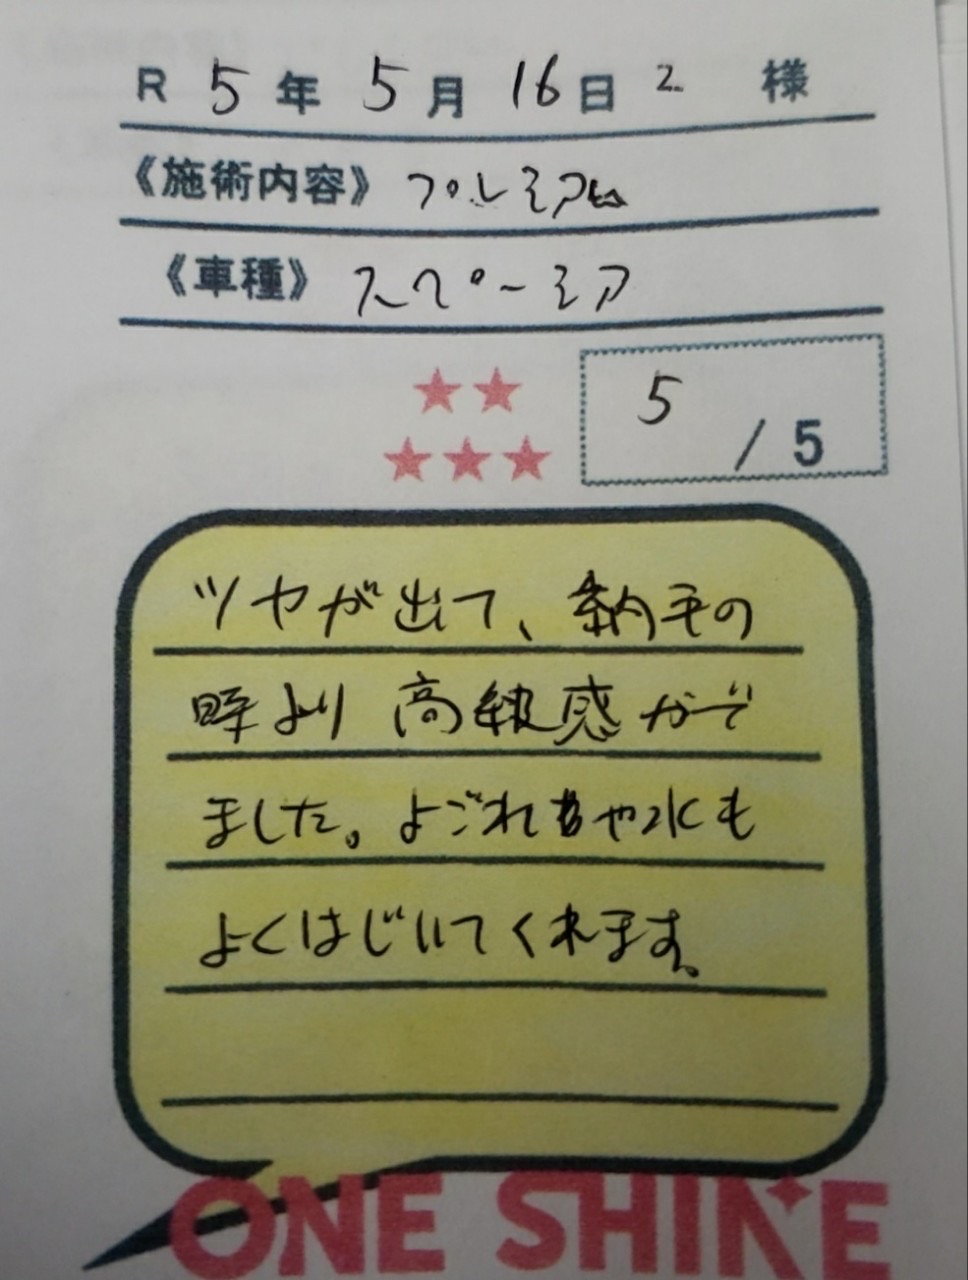 R 5年 5月 16日 2 様
《施術内容》 プレミアム
《車種》 スペーシア
5 / 5
ツヤが出て、納車の
時より 高級感がで
ました。よごれや水も
よくはじいてくれます。
ONE SHINE